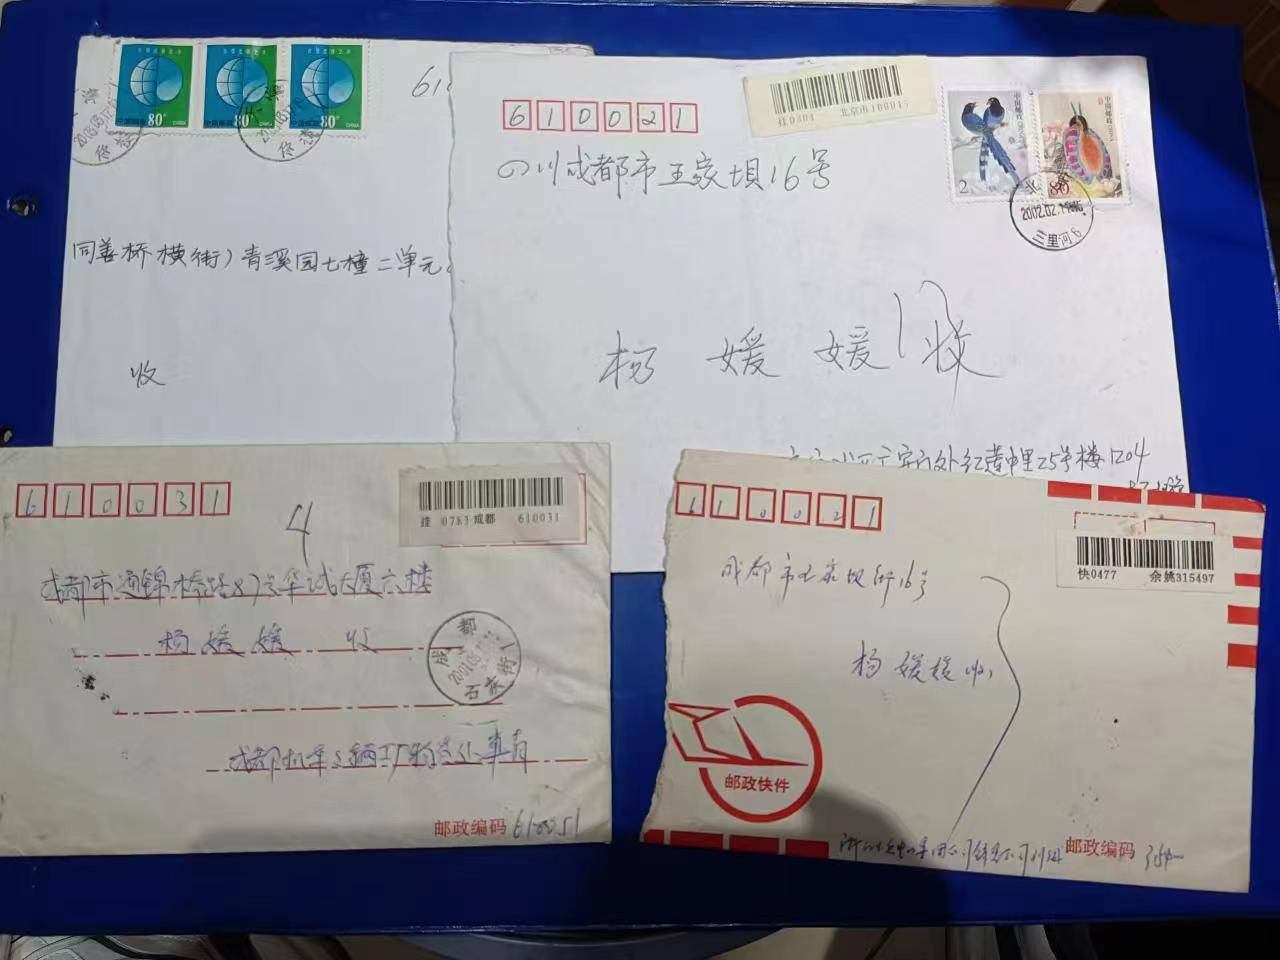 中国邮政 80分 CHINA
中国邮政 80分 CHINA
中国邮政 80分 CHINA
61
同善桥横街）青溪园七橦二单元
收
610021
挂0304 北京B100045
中国邮政
2
中国邮政
80分
北京
2002.02.
三里河6
四川成都市王家坝16号
杨媛媛 收
外红莲中里25号楼1204
610031
挂 0783 成都 610031
4
成都市通锦桥路87号华诚大厦六楼
杨媛媛 收
成都
2001.03
石灰街
成都机车车辆厂
邮政编码 610051
610021
快0477 余姚315497
成都市王家坝街16号
杨媛媛 收
邮政快件
邮政编码